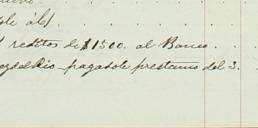 ole á b/
reditos de $1500. al Banco.
del Rio pagadole prestamo del 3.